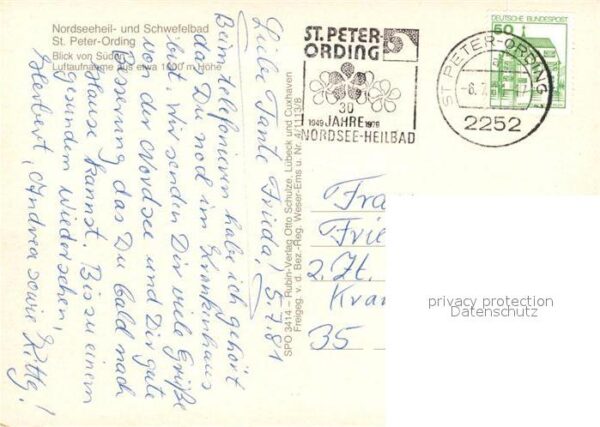 Nordseeheil- und Schwefelbad
St. Peter-Ording
Blick von Süden
Luftaufnahme aus etwa 1000 m Höhe
ST. PETER-
ORDING
30
1949 JAHRE 1979
NORDSEE-HEILBAD
DEUTSCHE BUNDESPOST
50
ST PETER-ORDING 1
2252
SPO 3414 – Rubin-Verlag Otto Schulze, Lübeck und Cuxhaven
Freigeg. v. d. Bez.-Reg. Weser-Ems u. Nr.
5.7.81
Liebe Tante Frieda!
Beim telefonieren habe ich gehört
das Du noch im Krankenhaus
bist. Wir senden Dir viele Grüße
von der Nordsee und Dir gute
Besserung das Du bald nach
Hause kannst. Bis zu einem
gesundem Wiedersehen,
Herbert, Andrea sowie Kitty!
Fra
Frie
z. Zt.
Kran
35
privacy protection
Datenschutz